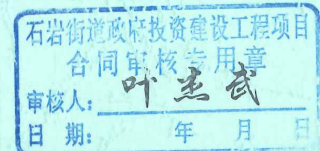 石岩街道政府投资建设工程项目
合同审核专用章
审核人：叶杰武
日期：　　年　月　日